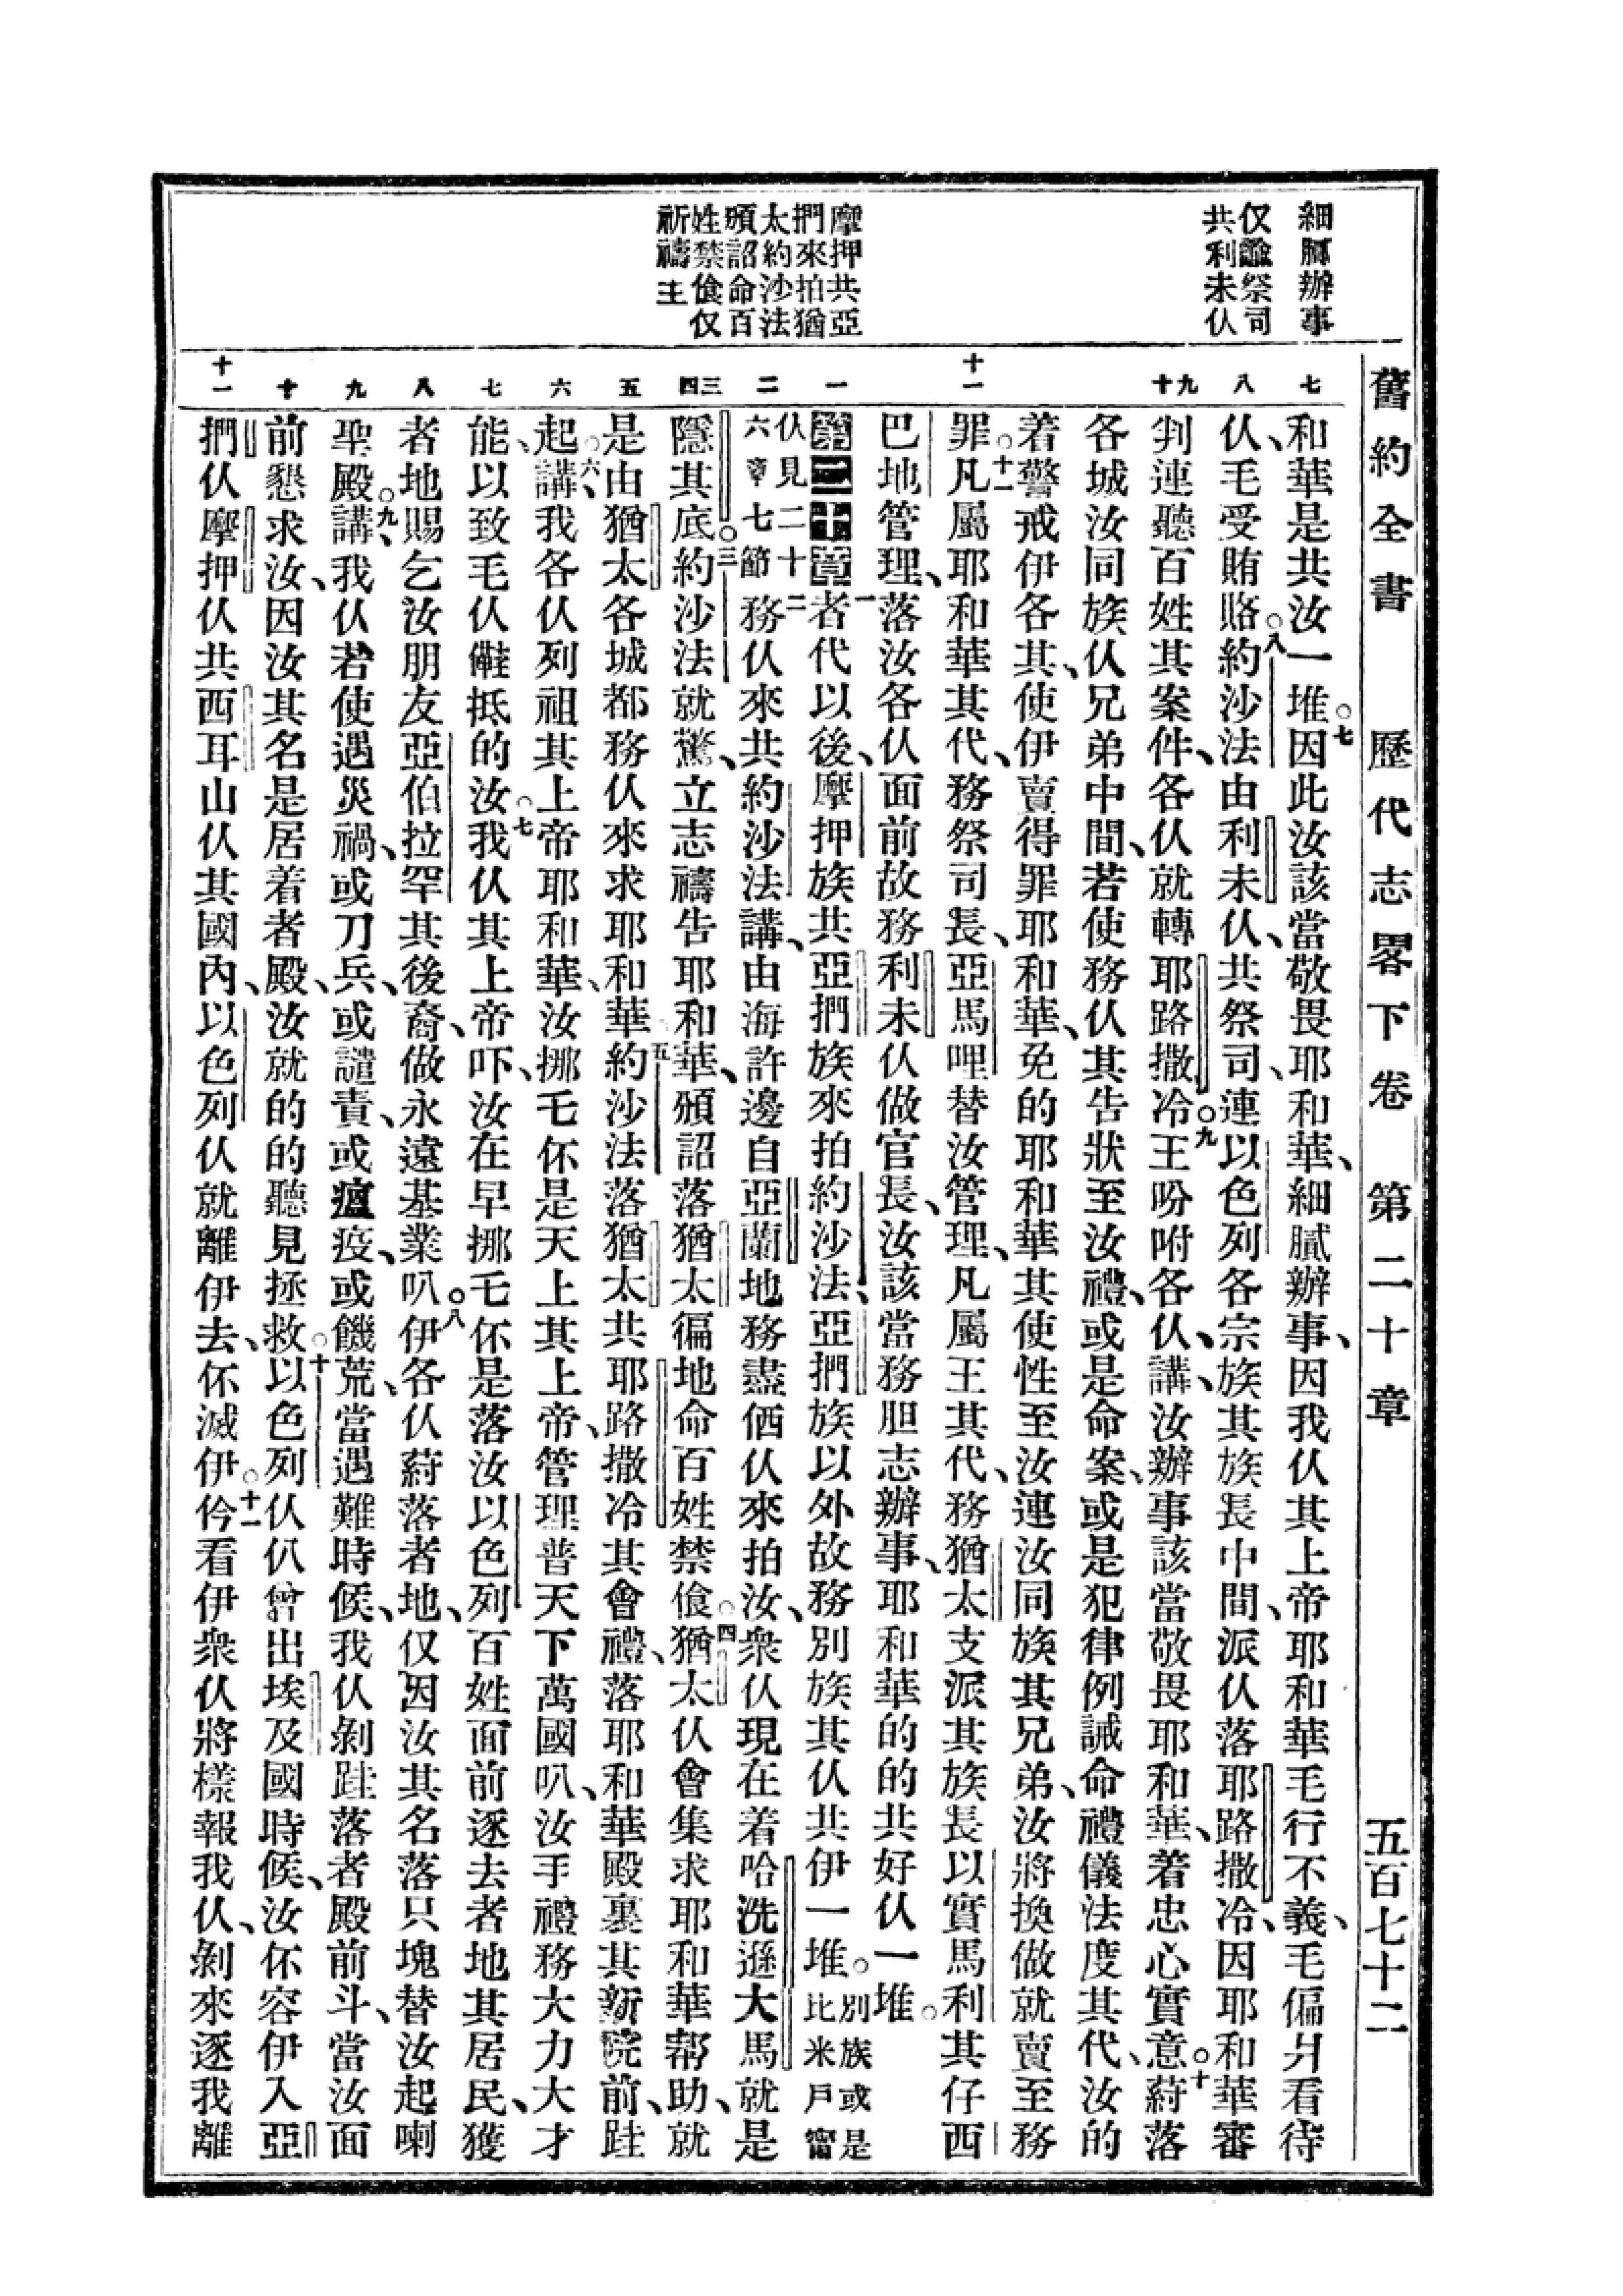 舊約全書　歷代志畧下卷　第二十章　五百七十二
細膩辦事
仅諭祭司
共利未仫
摩押共亞
捫來拍猶
太約沙法
頒詔命百
姓禁飡仅
祈禱主
七
八
九十
十一
一
二
三四
五
六
七
八
九
十
十一
和華是共汝一堆。七因此汝該當敬畏耶和華、細膩辦事、因我仫其上帝耶和華毛行不義、毛偏爿看待
仫、毛受賄賂。八約沙法由利未仫、共祭司連以色列各宗族其族長中間、派仫落耶路撒冷、因耶和華審
判連聽百姓其案件、各仫就轉耶路撒冷。九王吩咐各仫、講、汝辦事該當敬畏耶和華、着忠心實意。十葤落
各城汝同族仫兄弟中間、若使務仫其告狀至汝禮、或是命案、或是犯律例誡命禮儀法度其代、汝的
着警戒伊各其、使伊賣得罪耶和華、免的耶和華其使性至汝連汝同族其兄弟、汝將換做就賣至務
罪。十一凡屬耶和華其代、務祭司長、亞馬哩替汝管理、凡屬王其代、務猶太支派其族長以實馬利其仔西
巴地管理、落汝各仫面前故務利未仫做官長、汝該當務胆志辦事、耶和華的的共好仫一堆。
第二十章一者代以後、摩押族共亞捫族來拍約沙法、亞捫族以外故務別族其仫共伊一堆。別族或是比米戶甯
仫見二十二六章七節務仫來共約沙法講、由海許邊自亞蘭地務盡価仫來拍汝、衆仫現在着哈洗遜大馬就是
隱其底。三約沙法就驚、立志禱告耶和華、頒詔落猶太徧地命百姓禁飡。四猶太仫會集求耶和華幇助、就
是由猶太各城都務仫來求耶和華五約沙法落猶太共耶路撒冷其會禮、落耶和華殿裏其新院前、跬
起。六講、我各仫列祖其上帝耶和華、汝挪毛伓是天上其上帝、管理普天下萬國叭、汝手禮務大力大才
能、以致毛仫㑸抵的汝。七我仫其上帝吓、汝在早挪毛伓是落汝以色列百姓面前逐去者地其居民、獲
者地賜乞汝朋友亞伯拉罕其後裔、做永遠基業叭。八伊各仫葤落者地、仅因汝其名落只塊替汝起喇
聖殿。九講、我仫若使遇災禍、或刀兵、或譴責、或瘟疫、或饑荒、當遇難時候、我仫剝跬落者殿前斗、當汝面
前懇求汝、因汝其名是居着者殿、汝就的的聽見拯救。十以色列仫仈曾出埃及國時候、汝伓容伊入亞
捫仫摩押仫共西耳山仫其國內、以色列仫就離伊去、伓滅伊。十一仱看伊衆仫將樣報我仫、剝來逐我離